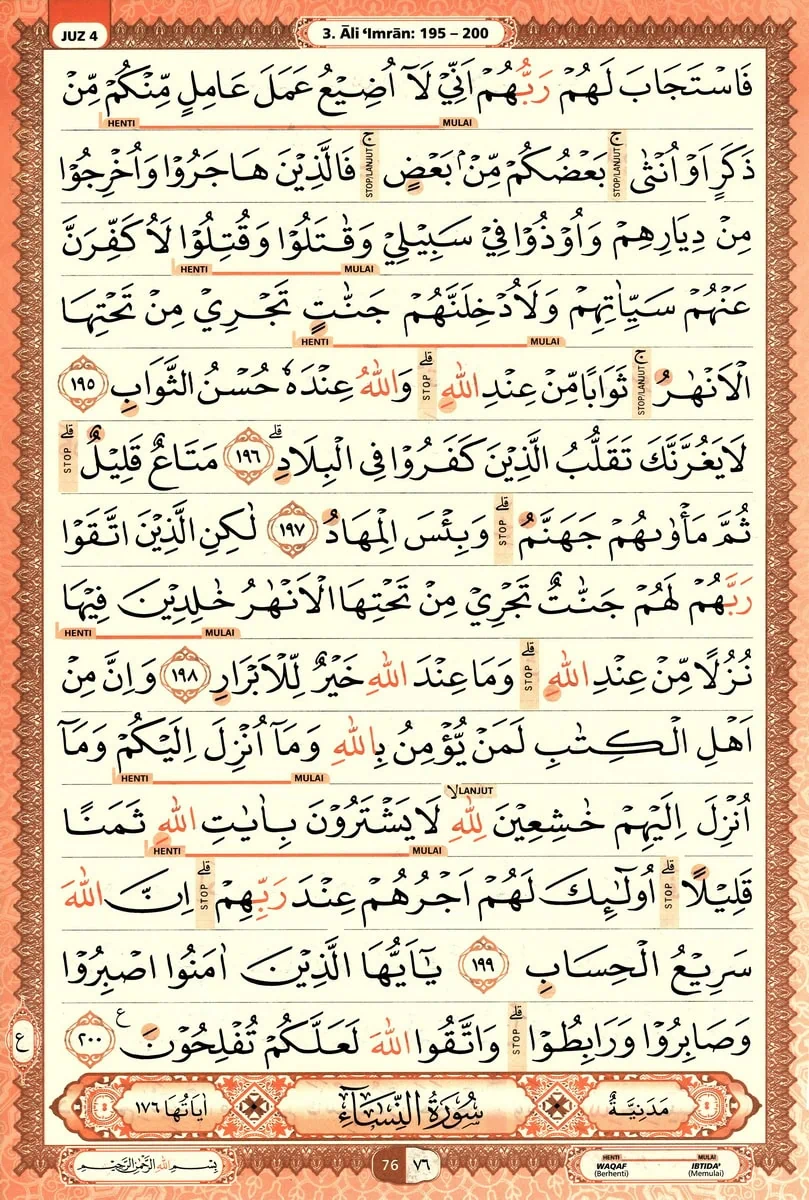 JUZ 4
3. Āli ‘Imrān: 195 – 200
فَاسْتَجَابَ لَهُمْ رَبُّهُمْ اَنِّيْ لَآ اُضِيْعُ عَمَلَ عَامِلٍ مِّنْكُمْ مِّنْ
HENTI MULAI
ذَكَرٍ اَوْ اُنْثٰى ۚ بَعْضُكُمْ مِّنْۢ بَعْضٍ ۚ فَالَّذِيْنَ هَاجَرُوْا وَاُخْرِجُوْا
STOP/LANJUT STOP/LANJUT
مِنْ دِيَارِهِمْ وَاُوْذُوْا فِيْ سَبِيْلِيْ وَقٰتَلُوْا وَقُتِلُوْا لَاُكَفِّرَنَّ
HENTI MULAI
عَنْهُمْ سَيِّاٰتِهِمْ وَلَاُدْخِلَنَّهُمْ جَنّٰتٍ تَجْرِيْ مِنْ تَحْتِهَا
HENTI MULAI
الْاَنْهٰرُ ۚ ثَوَابًا مِّنْ عِنْدِ اللّٰهِ ۗ وَاللّٰهُ عِنْدَهٗ حُسْنُ الثَّوَابِ ١٩٥
STOP/LANJUT STOP
لَا يَغُرَّنَّكَ تَقَلُّبُ الَّذِيْنَ كَفَرُوْا فِى الْبِلَادِ ۗ ١٩٦ مَتَاعٌ قَلِيْلٌ ۗ
STOP
ثُمَّ مَأْوٰىهُمْ جَهَنَّمُ ۗ وَبِئْسَ الْمِهَادُ ١٩٧ لٰكِنِ الَّذِيْنَ اتَّقَوْا
STOP
رَبَّهُمْ لَهُمْ جَنّٰتٌ تَجْرِيْ مِنْ تَحْتِهَا الْاَنْهٰرُ خٰلِدِيْنَ فِيْهَا
HENTI MULAI
نُزُلًا مِّنْ عِنْدِ اللّٰهِ ۗ وَمَا عِنْدَ اللّٰهِ خَيْرٌ لِّلْاَبْرَارِ ١٩٨ وَاِنَّ مِنْ
STOP
اَهْلِ الْكِتٰبِ لَمَنْ يُّؤْمِنُ بِاللّٰهِ وَمَآ اُنْزِلَ اِلَيْكُمْ وَمَآ
HENTI MULAI
اُنْزِلَ اِلَيْهِمْ خٰشِعِيْنَ لِلّٰهِ ۙ لَا يَشْتَرُوْنَ بِاٰيٰتِ اللّٰهِ ثَمَنًا
LANJUT HENTI MULAI
قَلِيْلًا ۗ اُولٰۤىِٕكَ لَهُمْ اَجْرُهُمْ عِنْدَ رَبِّهِمْ ۗ اِنَّ اللّٰهَ
STOP STOP
سَرِيْعُ الْحِسَابِ ١٩٩ يٰٓاَيُّهَا الَّذِيْنَ اٰمَنُوا اصْبِرُوْا
وَصَابِرُوْا وَرَابِطُوْا ۗ وَاتَّقُوا اللّٰهَ لَعَلَّكُمْ تُفْلِحُوْنَ ࣖ ٢٠٠
STOP
ع
مَدَنِيَّةٌ سُوْرَةُ النِّسَاۤءِ اٰيَاتُهَا ١٧٦
بِسْمِ اللّٰهِ الرَّحْمٰنِ الرَّحِيْمِ
76 ٧٦
HENTI MULAI
WAQAF IBTIDA'
(Berhenti) (Memulai)